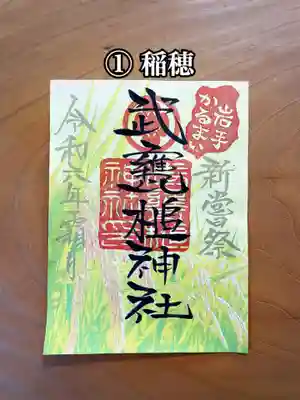 ① 稲穂
岩手
かるまい
新嘗祭
武甕槌神社
令和六年霜月